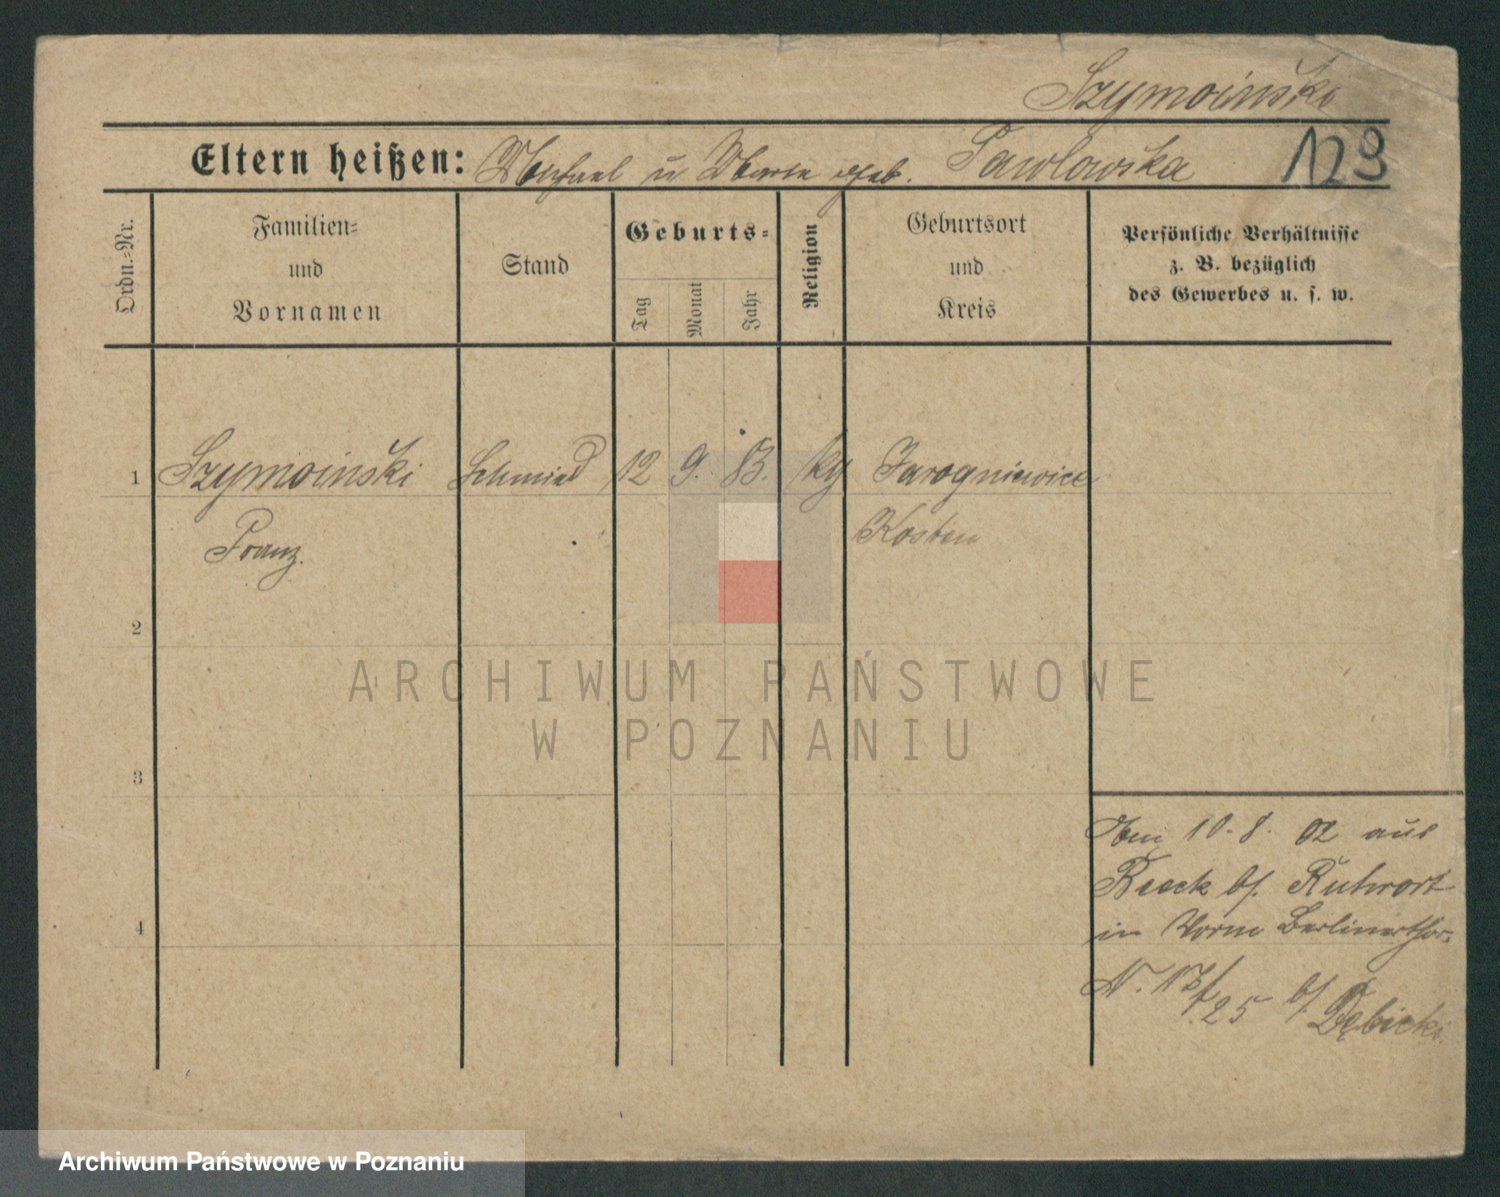 Szymoiński
Eltern heißen: Michael u Maria geb. Pawlowska 123
Ordn.-Nr.
Familien-
und
Vornamen
Stand
Geburts-
Tag
Monat
Jahr
Religion
Geburtsort
und
Kreis
Persönliche Verhältnisse
z. B. bezüglich
des Gewerbes u. s. w.
1 Szymoiński Schmied 12 9. 83. Jarogniewice
Franz. Kosten
2
3
4
10. 8. 02 aus
Beeck b/. Ruhrort
in Berlinerthor-
N. 25 b/. Dębicki
ARCHIWUM PAŃSTWOWE
W POZNANIU
Archiwum Państwowe w Poznaniu